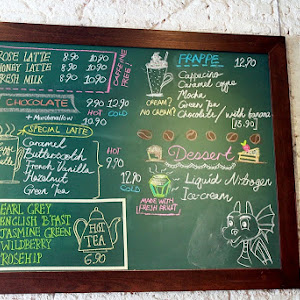 ROSE LATTE 8.90 10.90
HONEY LATTE 8.90 10.90
FRESH MILK 8.90 10.90
CAFFEINE FREE!
CHOCOLATE 9.90 12.90
+ Marshmallow HOT COLD
SPECIAL LATTE
Caramel
Butterscotch
French Vanilla
Hazelnut
Green Tea
HOT
9.90
12.90
COLD
EARL GREY
ENGLISH B'FAST
JASMINE GREEN
WILDBERRY
ROSEHIP
HOT
TEA
6.90
FRAPPE 12.90
Cappucino
Caramel coffee
Mocha
Green Tea
Chocolate / with banana
(15.90)
CREAM?
NO CREAM?
Dessert
Liquid Nitrogen
Ice-cream
MADE WITH
FRESH FRUIT